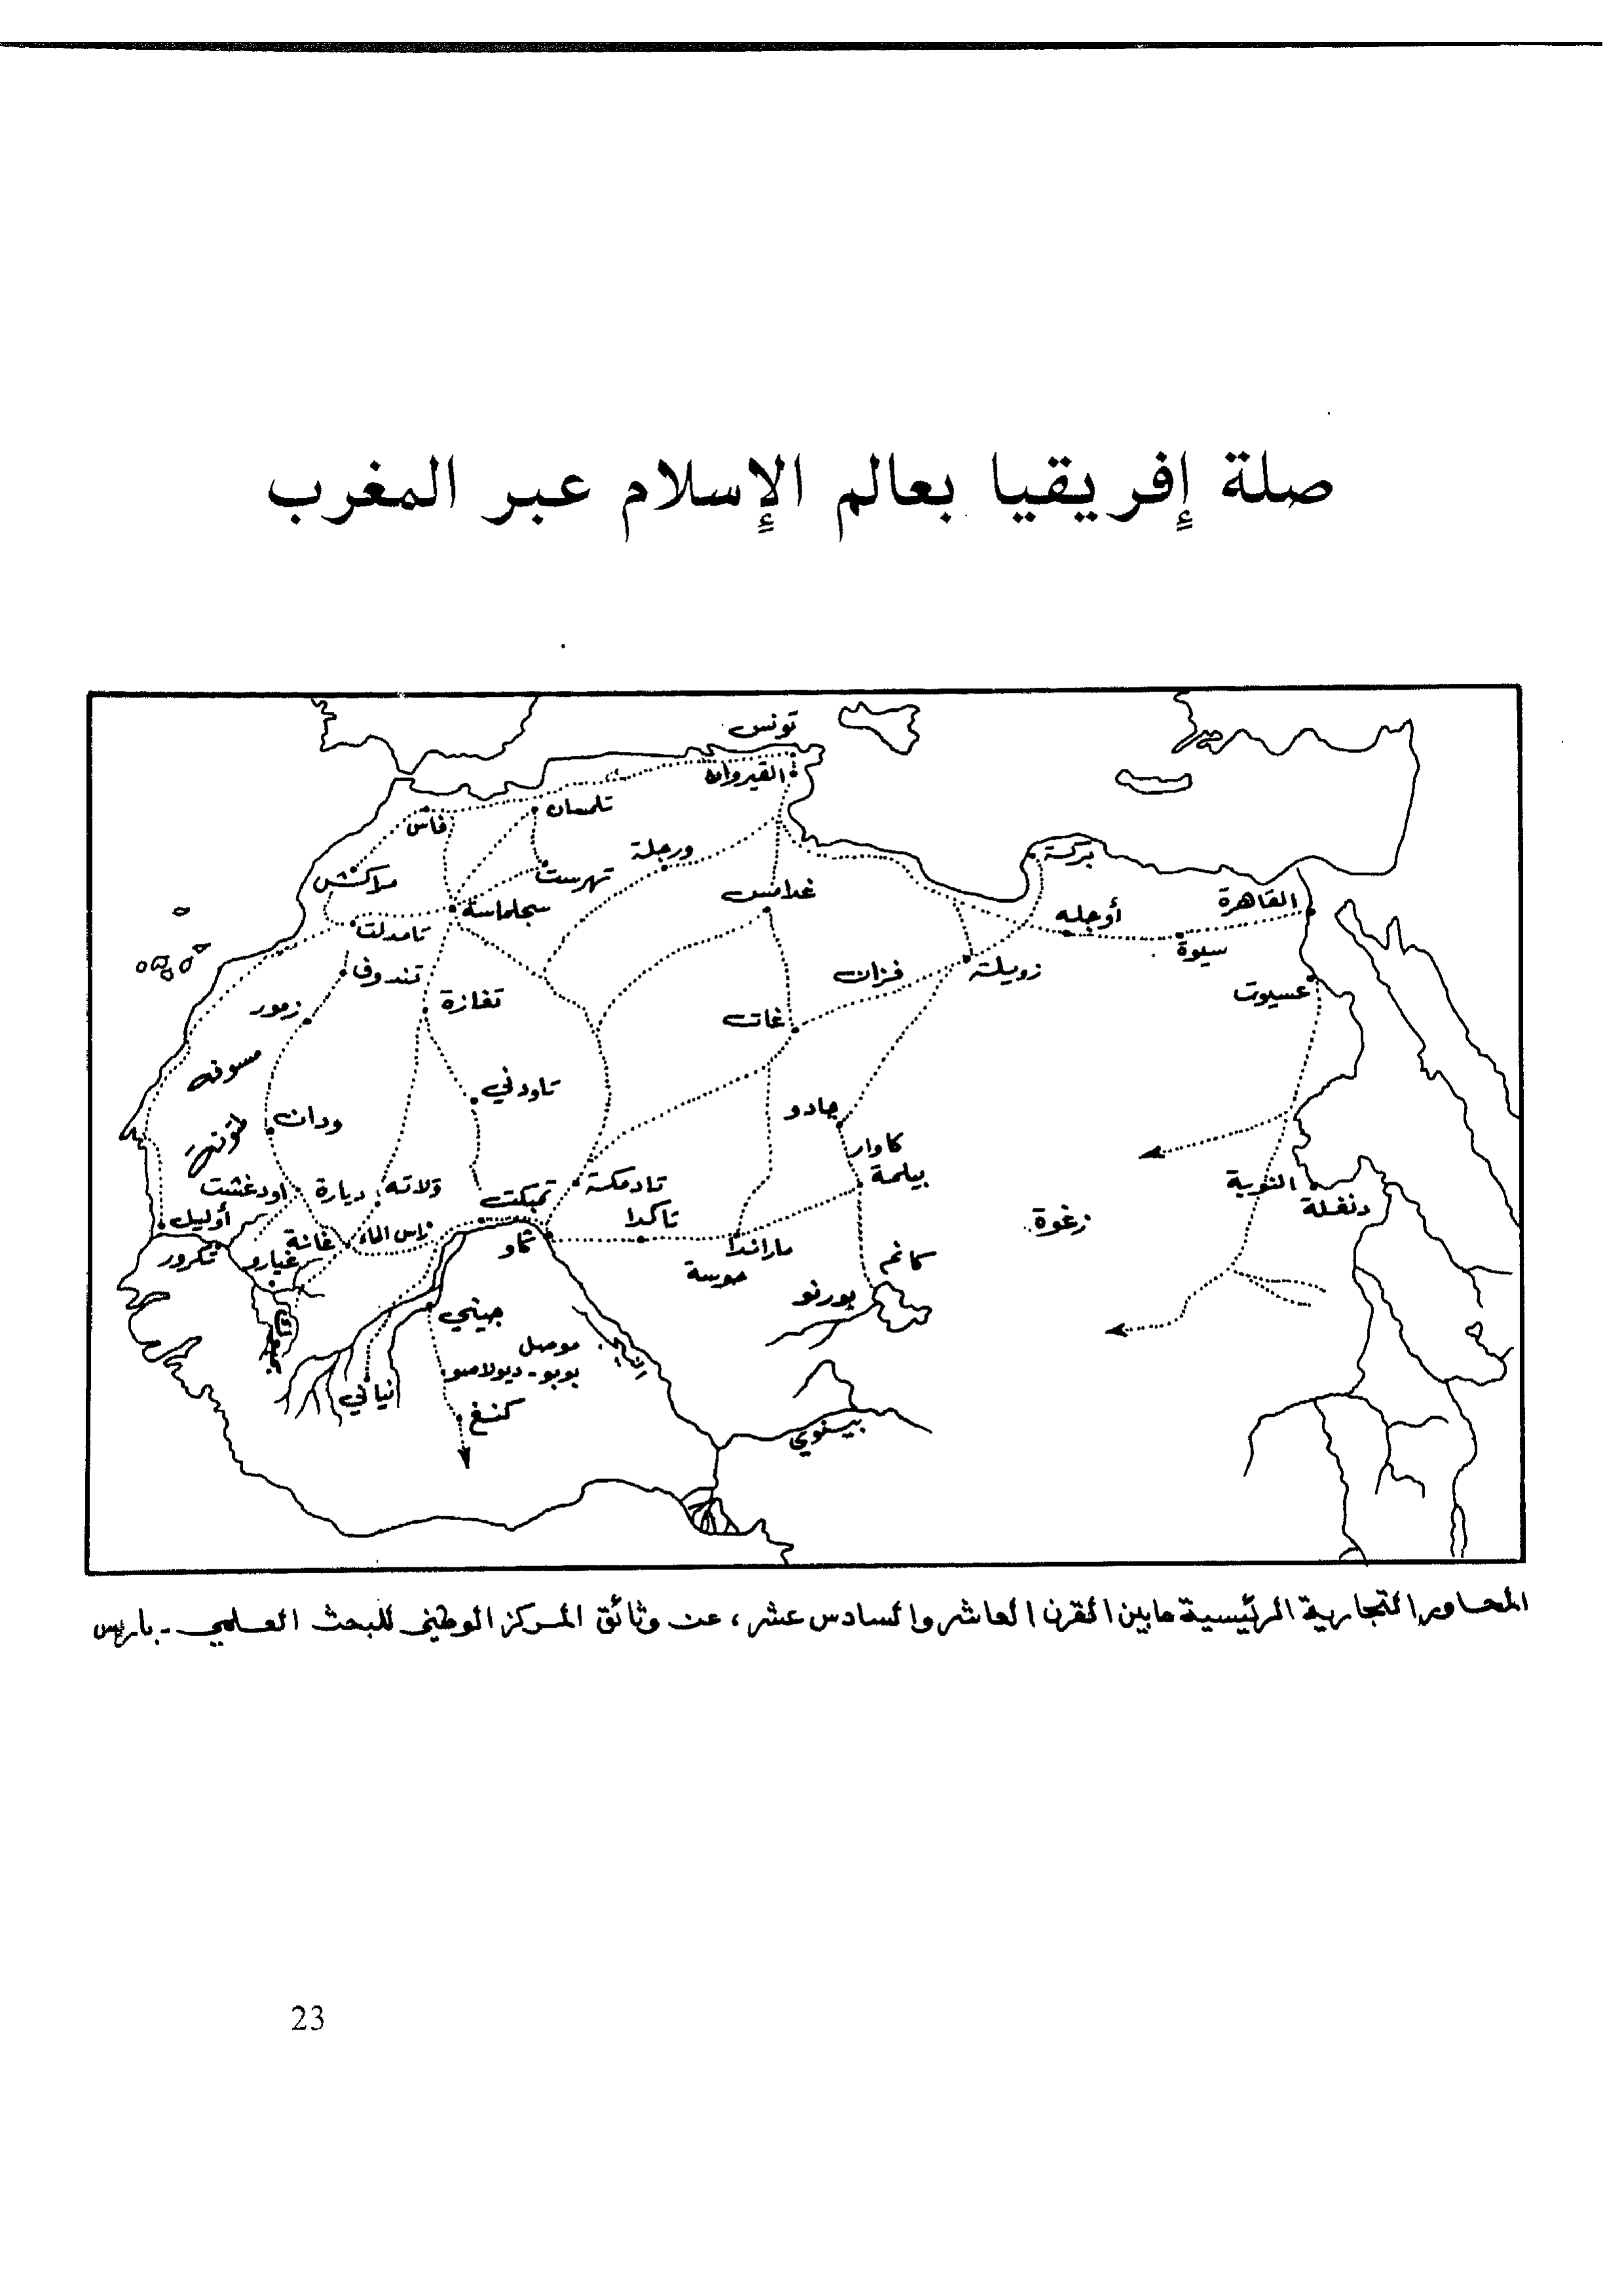 صلة إفريقيا بعالم الإسلام عبر المغرب
تونس
القيروان
تلمسان
فاس
ورجلة
بركة
مراكش
تهرست
غدامس
القاهرة
سجلماسة
أوجله
تامدلت
سيوة
تندوف
فزان
زويلة
تغازة
عسيوت
زمور
غات
مسوفه
تاودني
جادو
ودان
كاوار
بيلمة
تادمكة
اودغشت
ديارة
ولاته
تمبكت
النوبية
دنغلة
أوليل
تاكدا
زغوة
راس الماء
غانة
تكرور
غيارو
گاو
ماراندا
حوسة
كانم
بورنو
جيني
موصل
بوبو - ديولاسو
نياني
كنغ
بينوي
المحاور التجارية الرئيسية مابين القرن العاشر والسادس عشر ، عن وثائق المركز الوطني للبحث العلمي - باريس
23